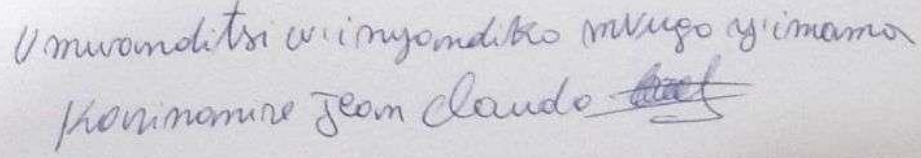 Umwanditsi w'inyandiko mvugo y'inama
Karinamire Jean Claude